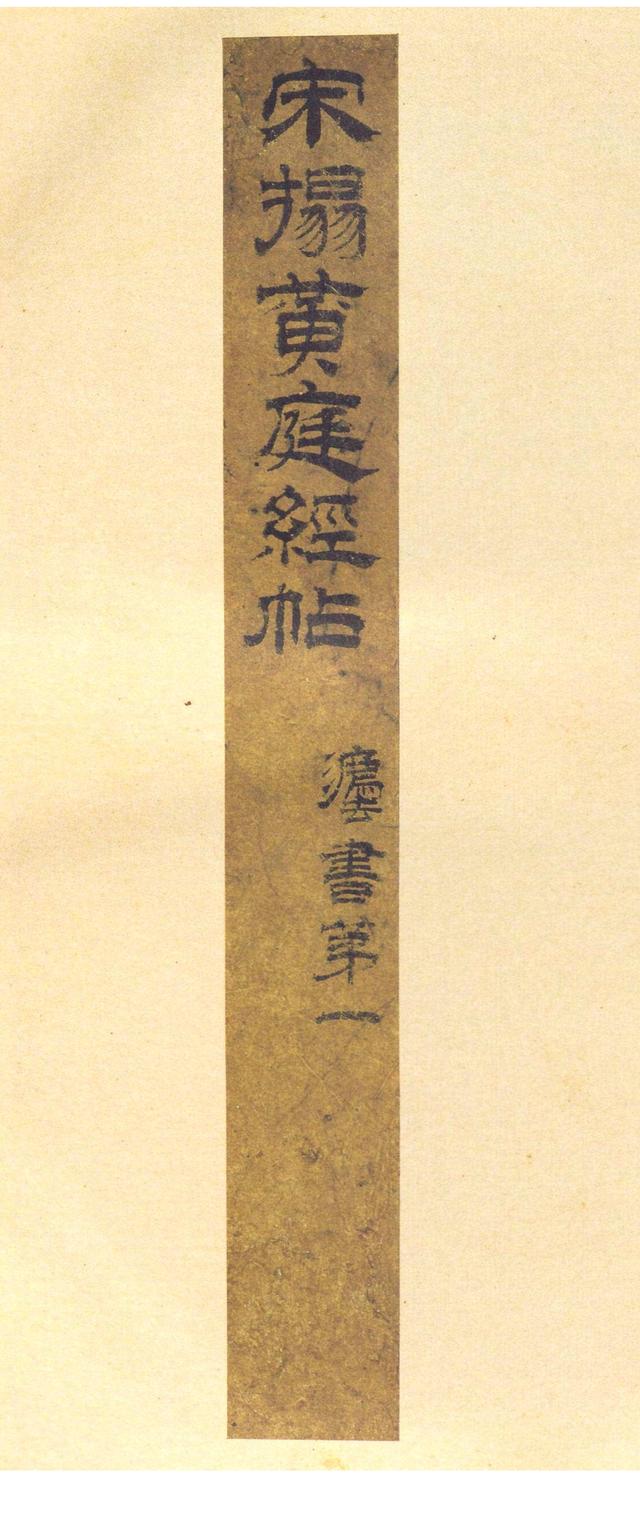 宋搨黃庭經帖
書第一